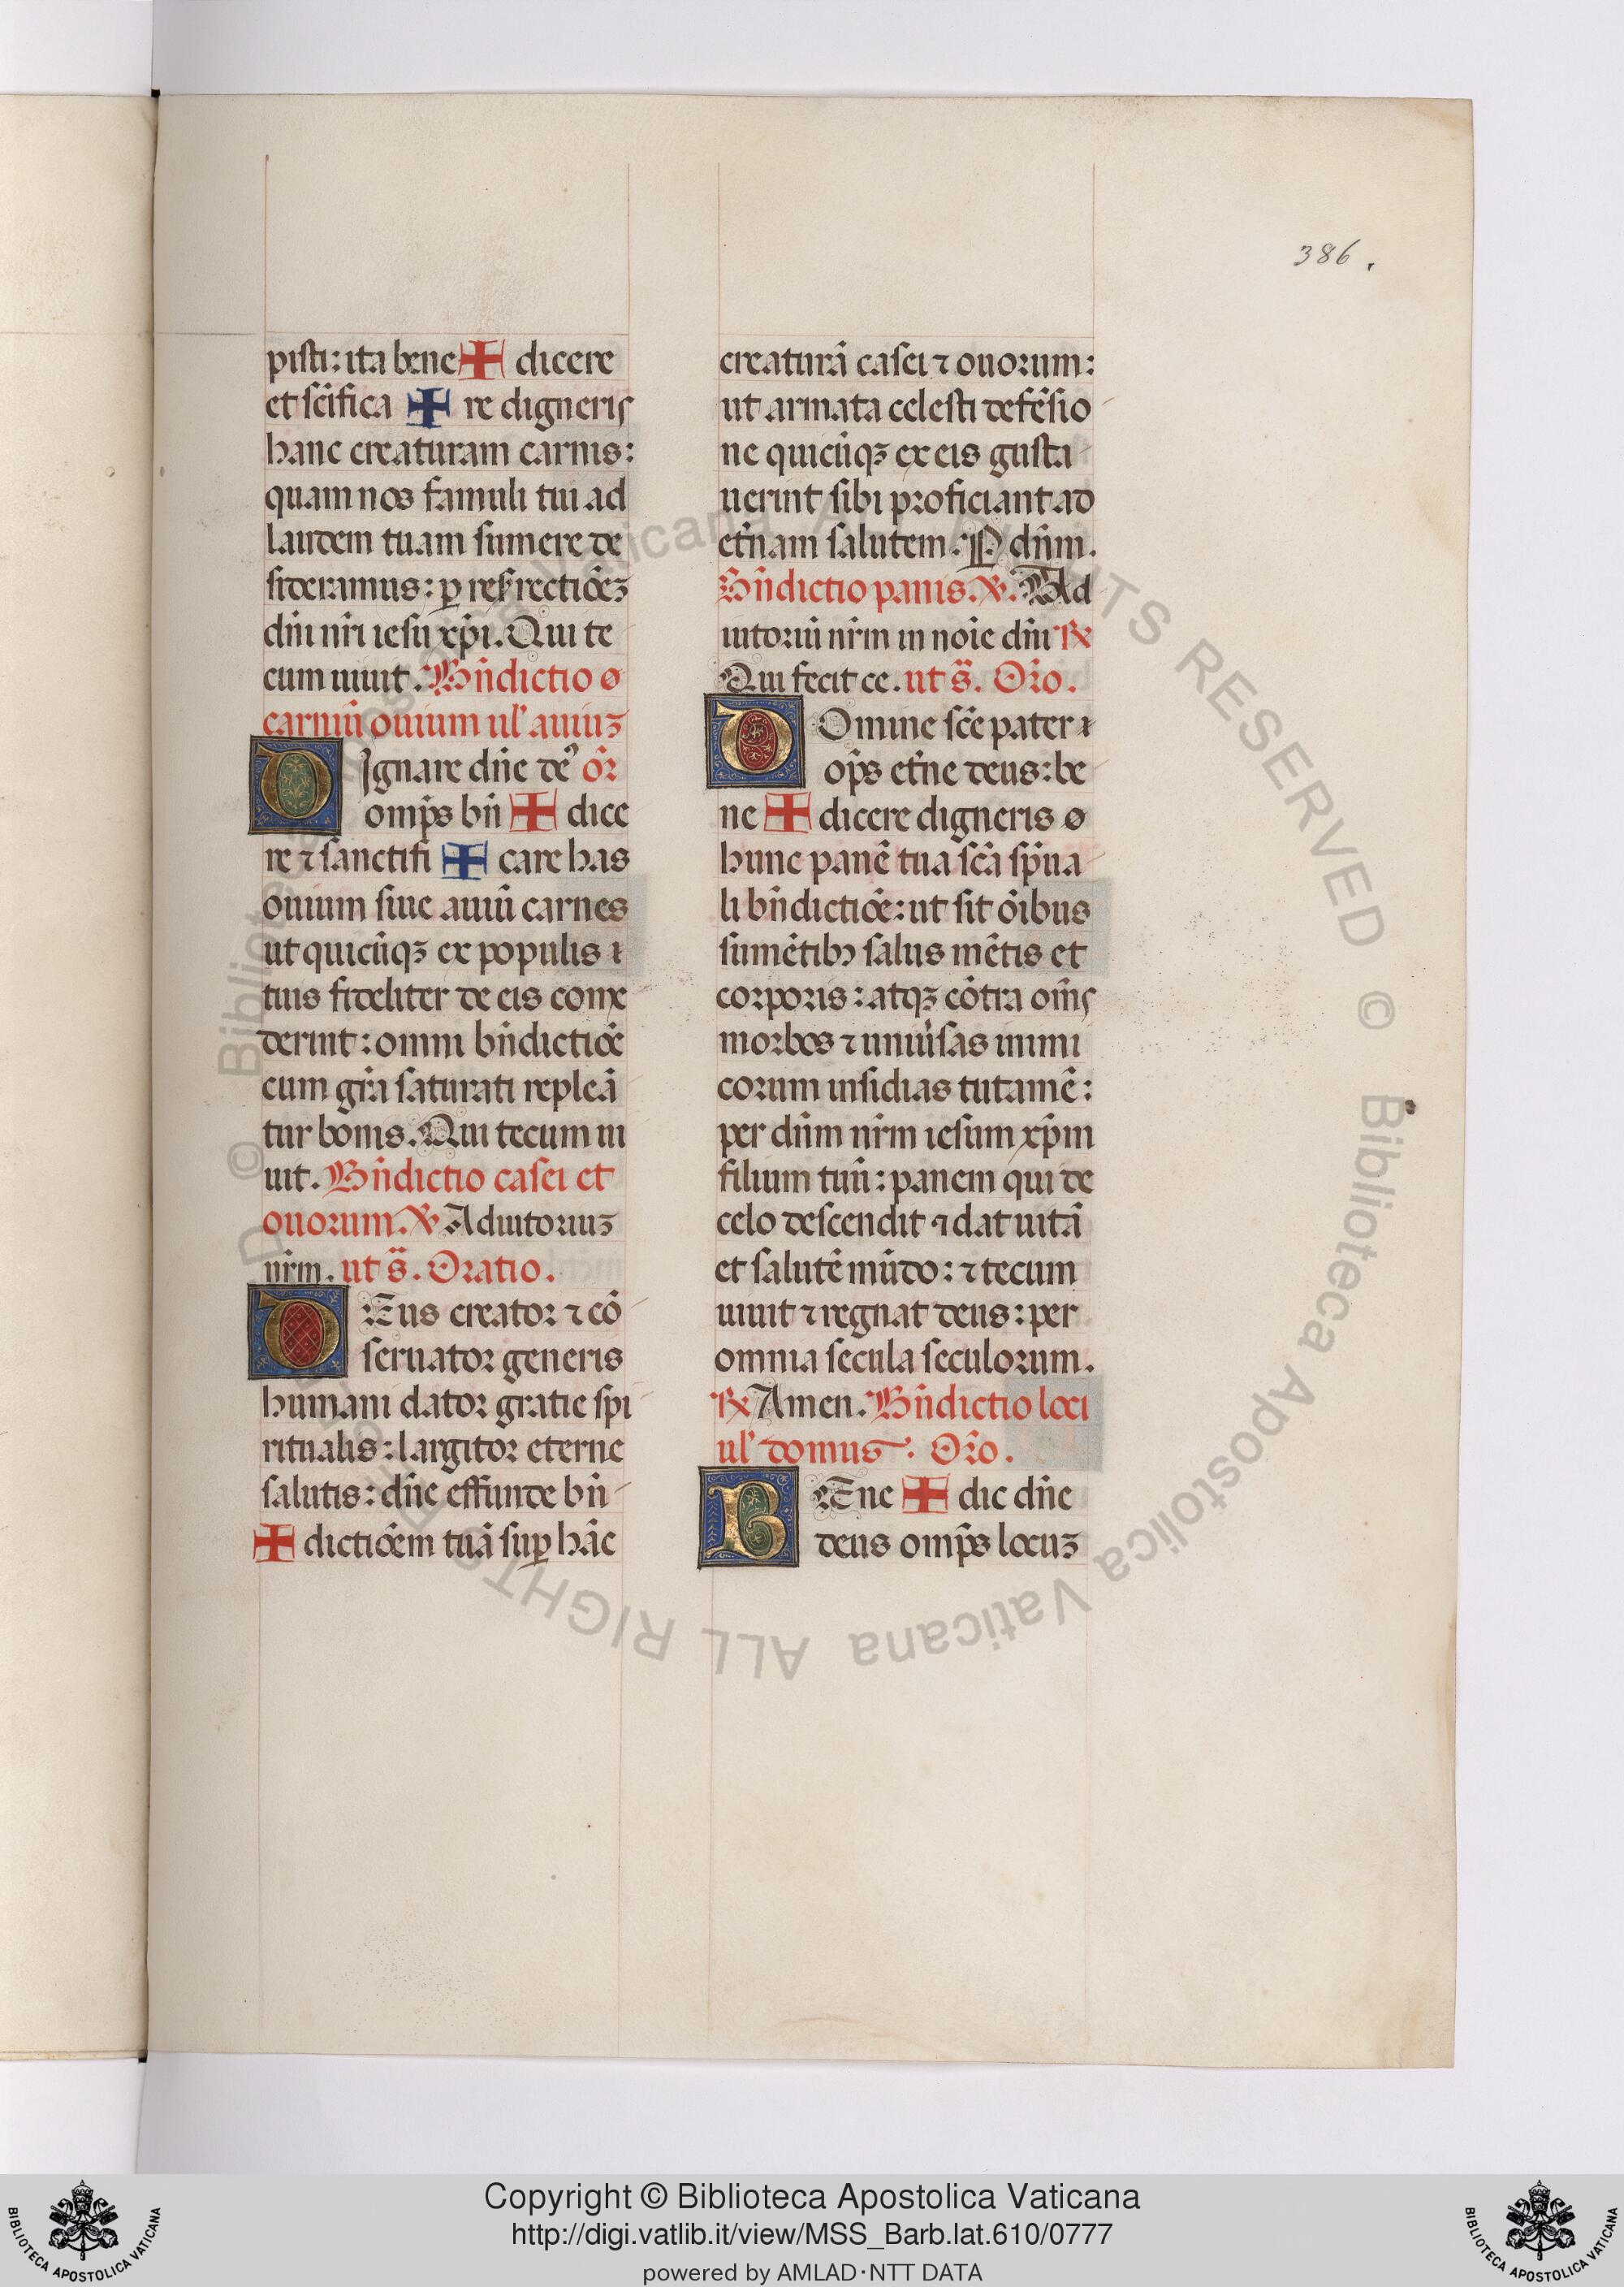 386.
pisti: ita bene ✠ dicere
et scĩfica ✠ re digneris
hanc creaturam carnis:
quam nos famuli tui ad
laudem tuam sumere de
sideramus: ꝑ resr̃rectiõeꝫ
dñi nr̃i iesu xp̃i. Qui te
cum uiuit. Bñdictio
carniũ ouium ul' auiuꝫ
DIgnare dñe de' or̃
omp̃s bñ ✠ dice
re ⁊ sanctifi ✠ care has
ouium siue auiũ carnes
ut quicũqꝫ ex populis
tuis fideliter de eis come
derint: omni bñdictiõe
cum gr̃a saturati repleã
tur bonis. Qui tecum ui
uit. Bñdictio casei et
ouorum. ℣ Adiutoriuꝫ
nr̃m. ut s̃. Oratio.
DEus creator ⁊ cõ
seruator generis
humani dator gratie spi
ritualis: largitor eterne
salutis: dñe effunde bñ
✠ dictiõem tuã suꝑ hãc
creaturã casei ⁊ ouorum:
ut armata celesti defẽsio
ne quicũqꝫ ex eis gusta
uerint sibi proficiant ad
et̃nam salutem. P dñm.
Bñdictio panis. ℣. Ad
iutoriũ nr̃m in noĩe dñi ℞
Qui fecit ce. ut s̃. Or̃o.
DOmine scẽ pater
op̃s et̃ne deus: be
ne ✠ dicere digneris
hunc panẽ tua scã sp̃ua
li bñdictiõe: ut sit oĩbus
sumẽtibꝫ salus mẽtis et
corporis: atqꝫ cõtra om̃s
morbos ⁊ uniũsas inimi
corum insidias tutamẽ:
per dñm nr̃m iesum xp̃m
filium tuũ: panem qui de
celo descendit ⁊ dat uitã
et salutẽ mũdo: ⁊ tecum
uiuit ⁊ regnat deus: per
omnia secula seculorum.
℞ Amen. Bñdictio loci
ul' domus. Or̃o.
BEne ✠ dic dñe
deus omp̃s locuꝫ
© Biblioteca Apostolica Vaticana ALL RIGHTS RESERVED
Copyright © Biblioteca Apostolica Vaticana
http://digi.vatlib.it/view/MSS_Barb.lat.610/0777
powered by AMLAD·NTT DATA
BIBLIOTECA APOSTOLICA VATICANA
BIBLIOTECA APOSTOLICA VATICANA